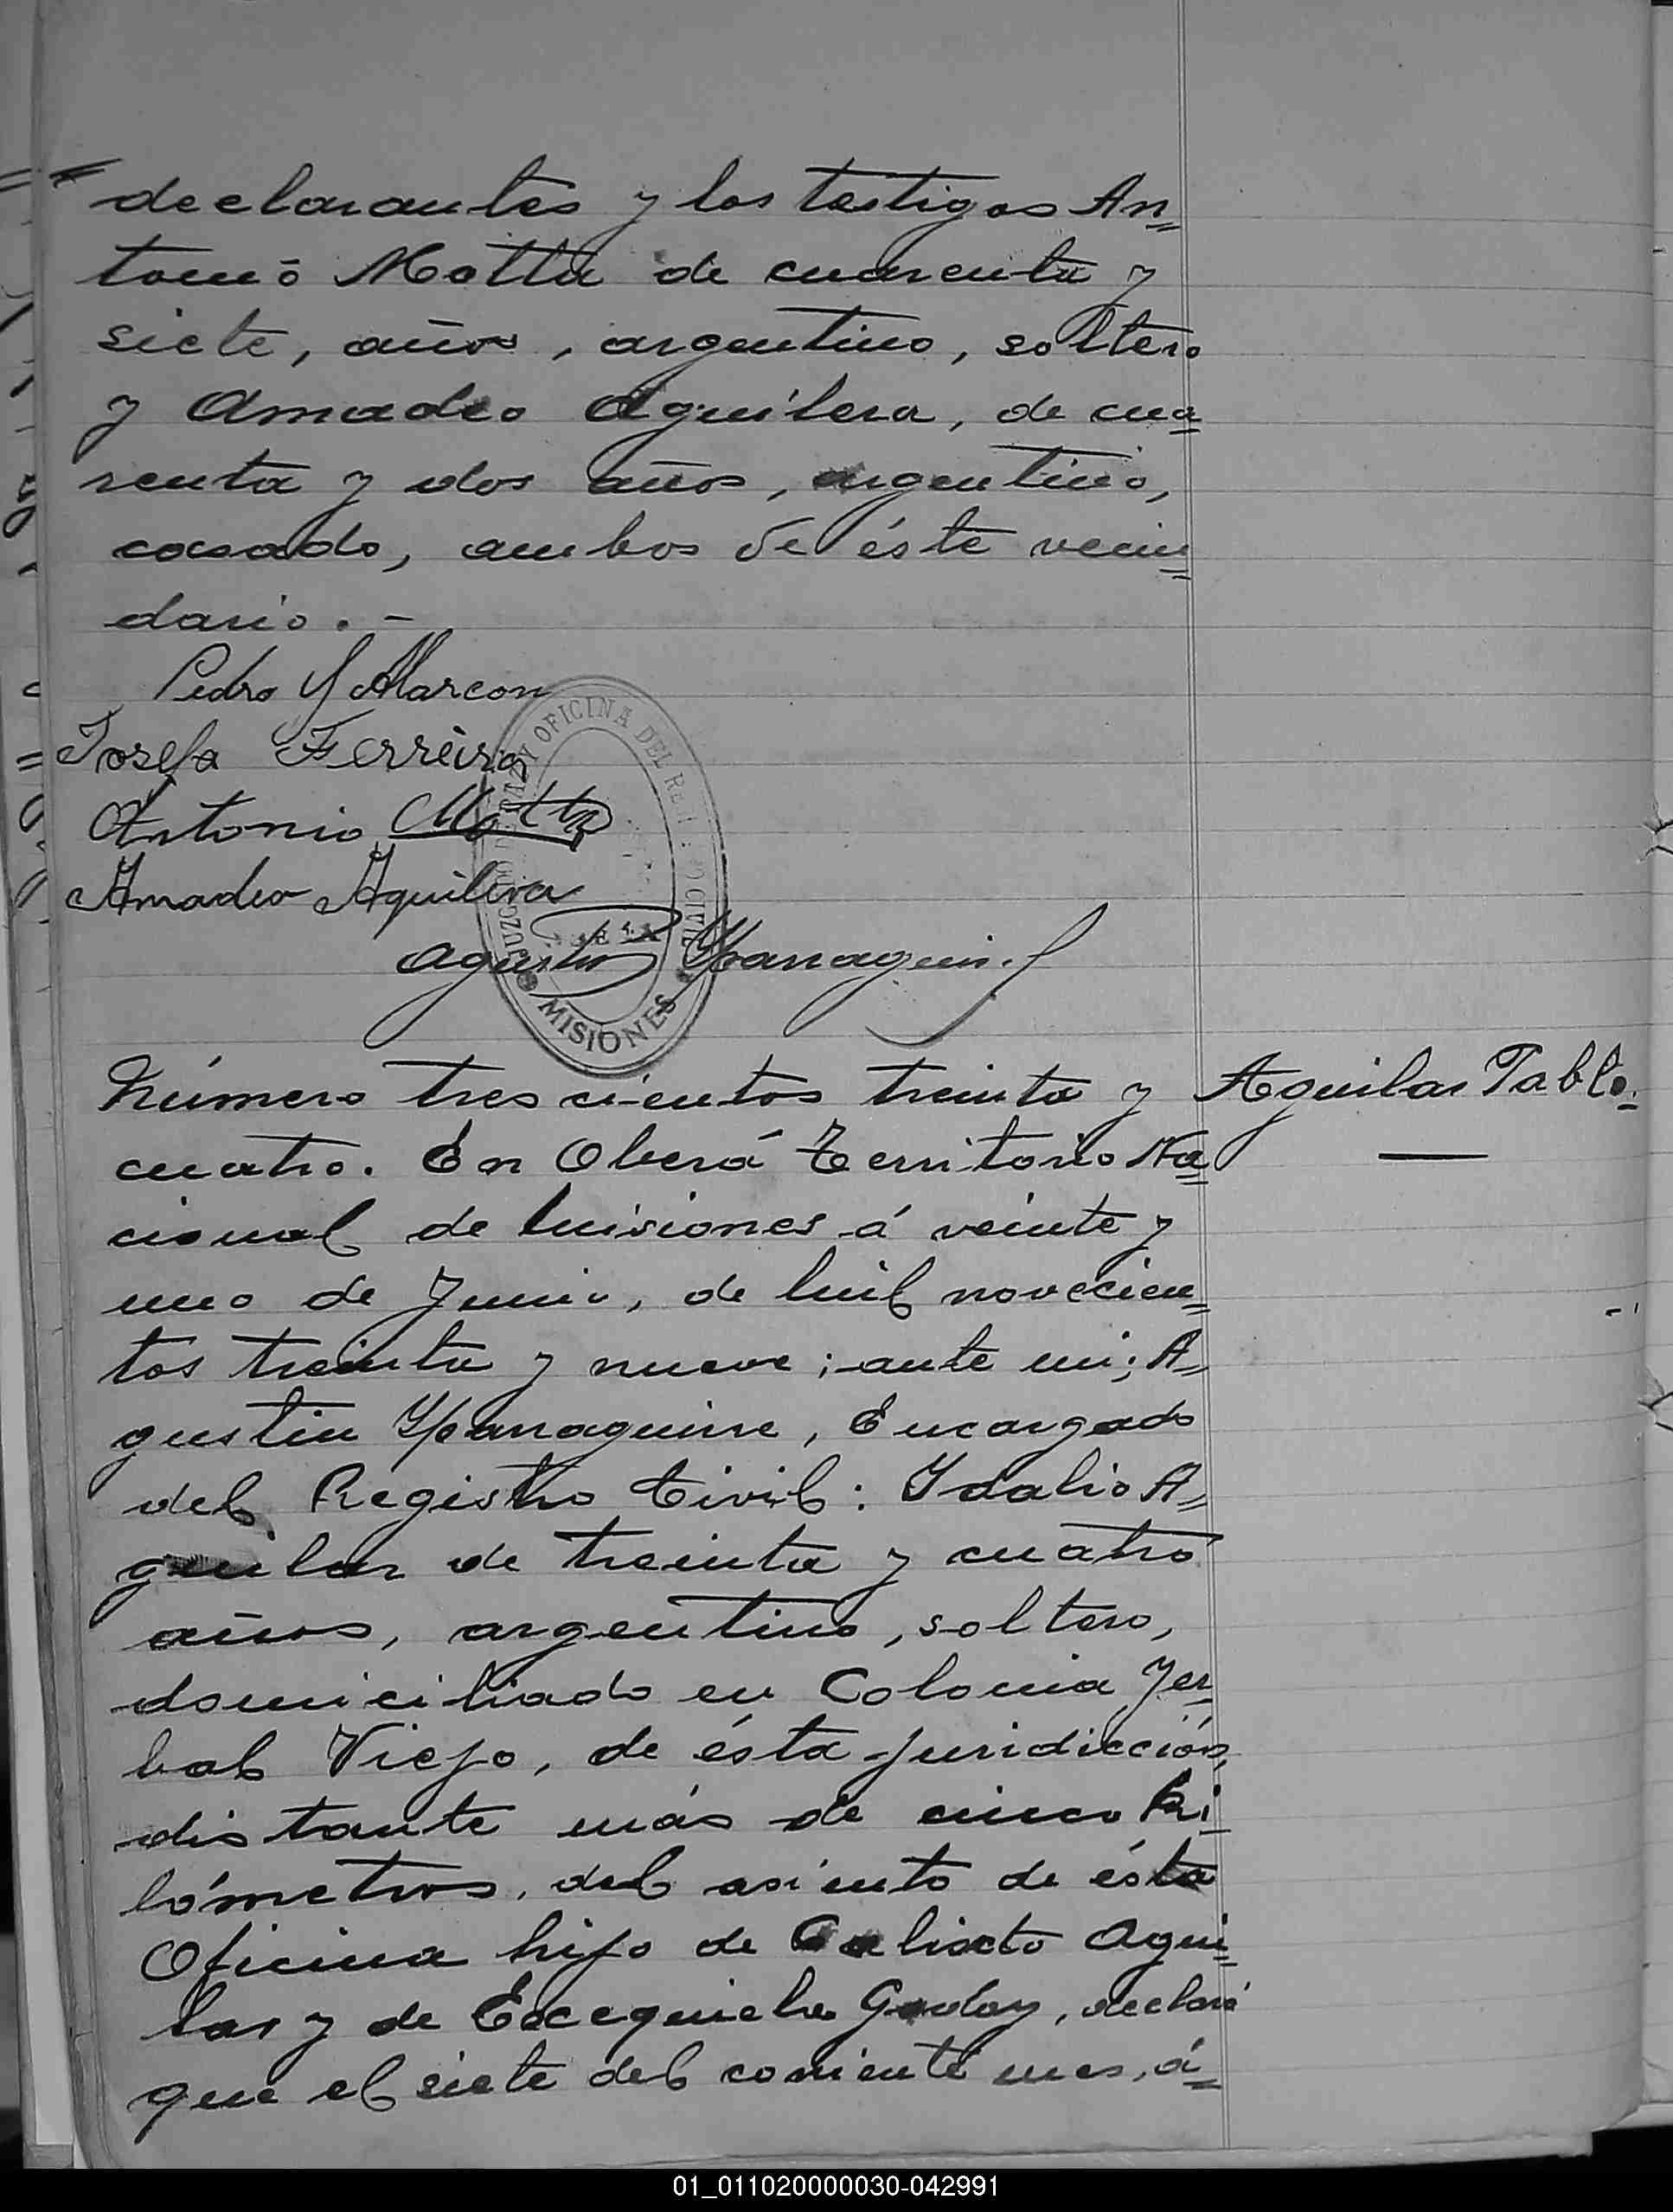 declarantes y los testigos An=
tonio Motta de cuarenta y
siete, años, argentino, soltero
y Amadeo Aguilera, de cua=
renta y dos años, argentino,
casado, ambos de éste vecin=
dario. -
Pedro Y Alarcon
Josefa Ferreira
Antonio Motta
Amadeo Aguilera
JUZGADO DE PAZ Y OFICINA DEL REGISTRO CIVIL
MISIONES
Agustin Yparraguirre
Número trescientos treinta y
cuatro. En Oberá Territorio Na=
cional de Misiones á veinte y
uno de Junio, de mil novecien=
tos treinta y nueve; ante mi; A=
gustin Yparraguirre, Encargado
del Registro Civil: Idalio A=
guilar de treinta y cuatro
años, argentino, soltero,
domiciliado en Colonia Yer=
bal Viejo, de ésta juridicción,
distante más de cinco Ki=
lómetros, del asiento de ésta
Oficina hijo de Calixto Agui=
lar y de Excequiela Godoy, declaró
que el siete del corriente mes, á=
Aguilar Pablo.
01_011020000030-042991